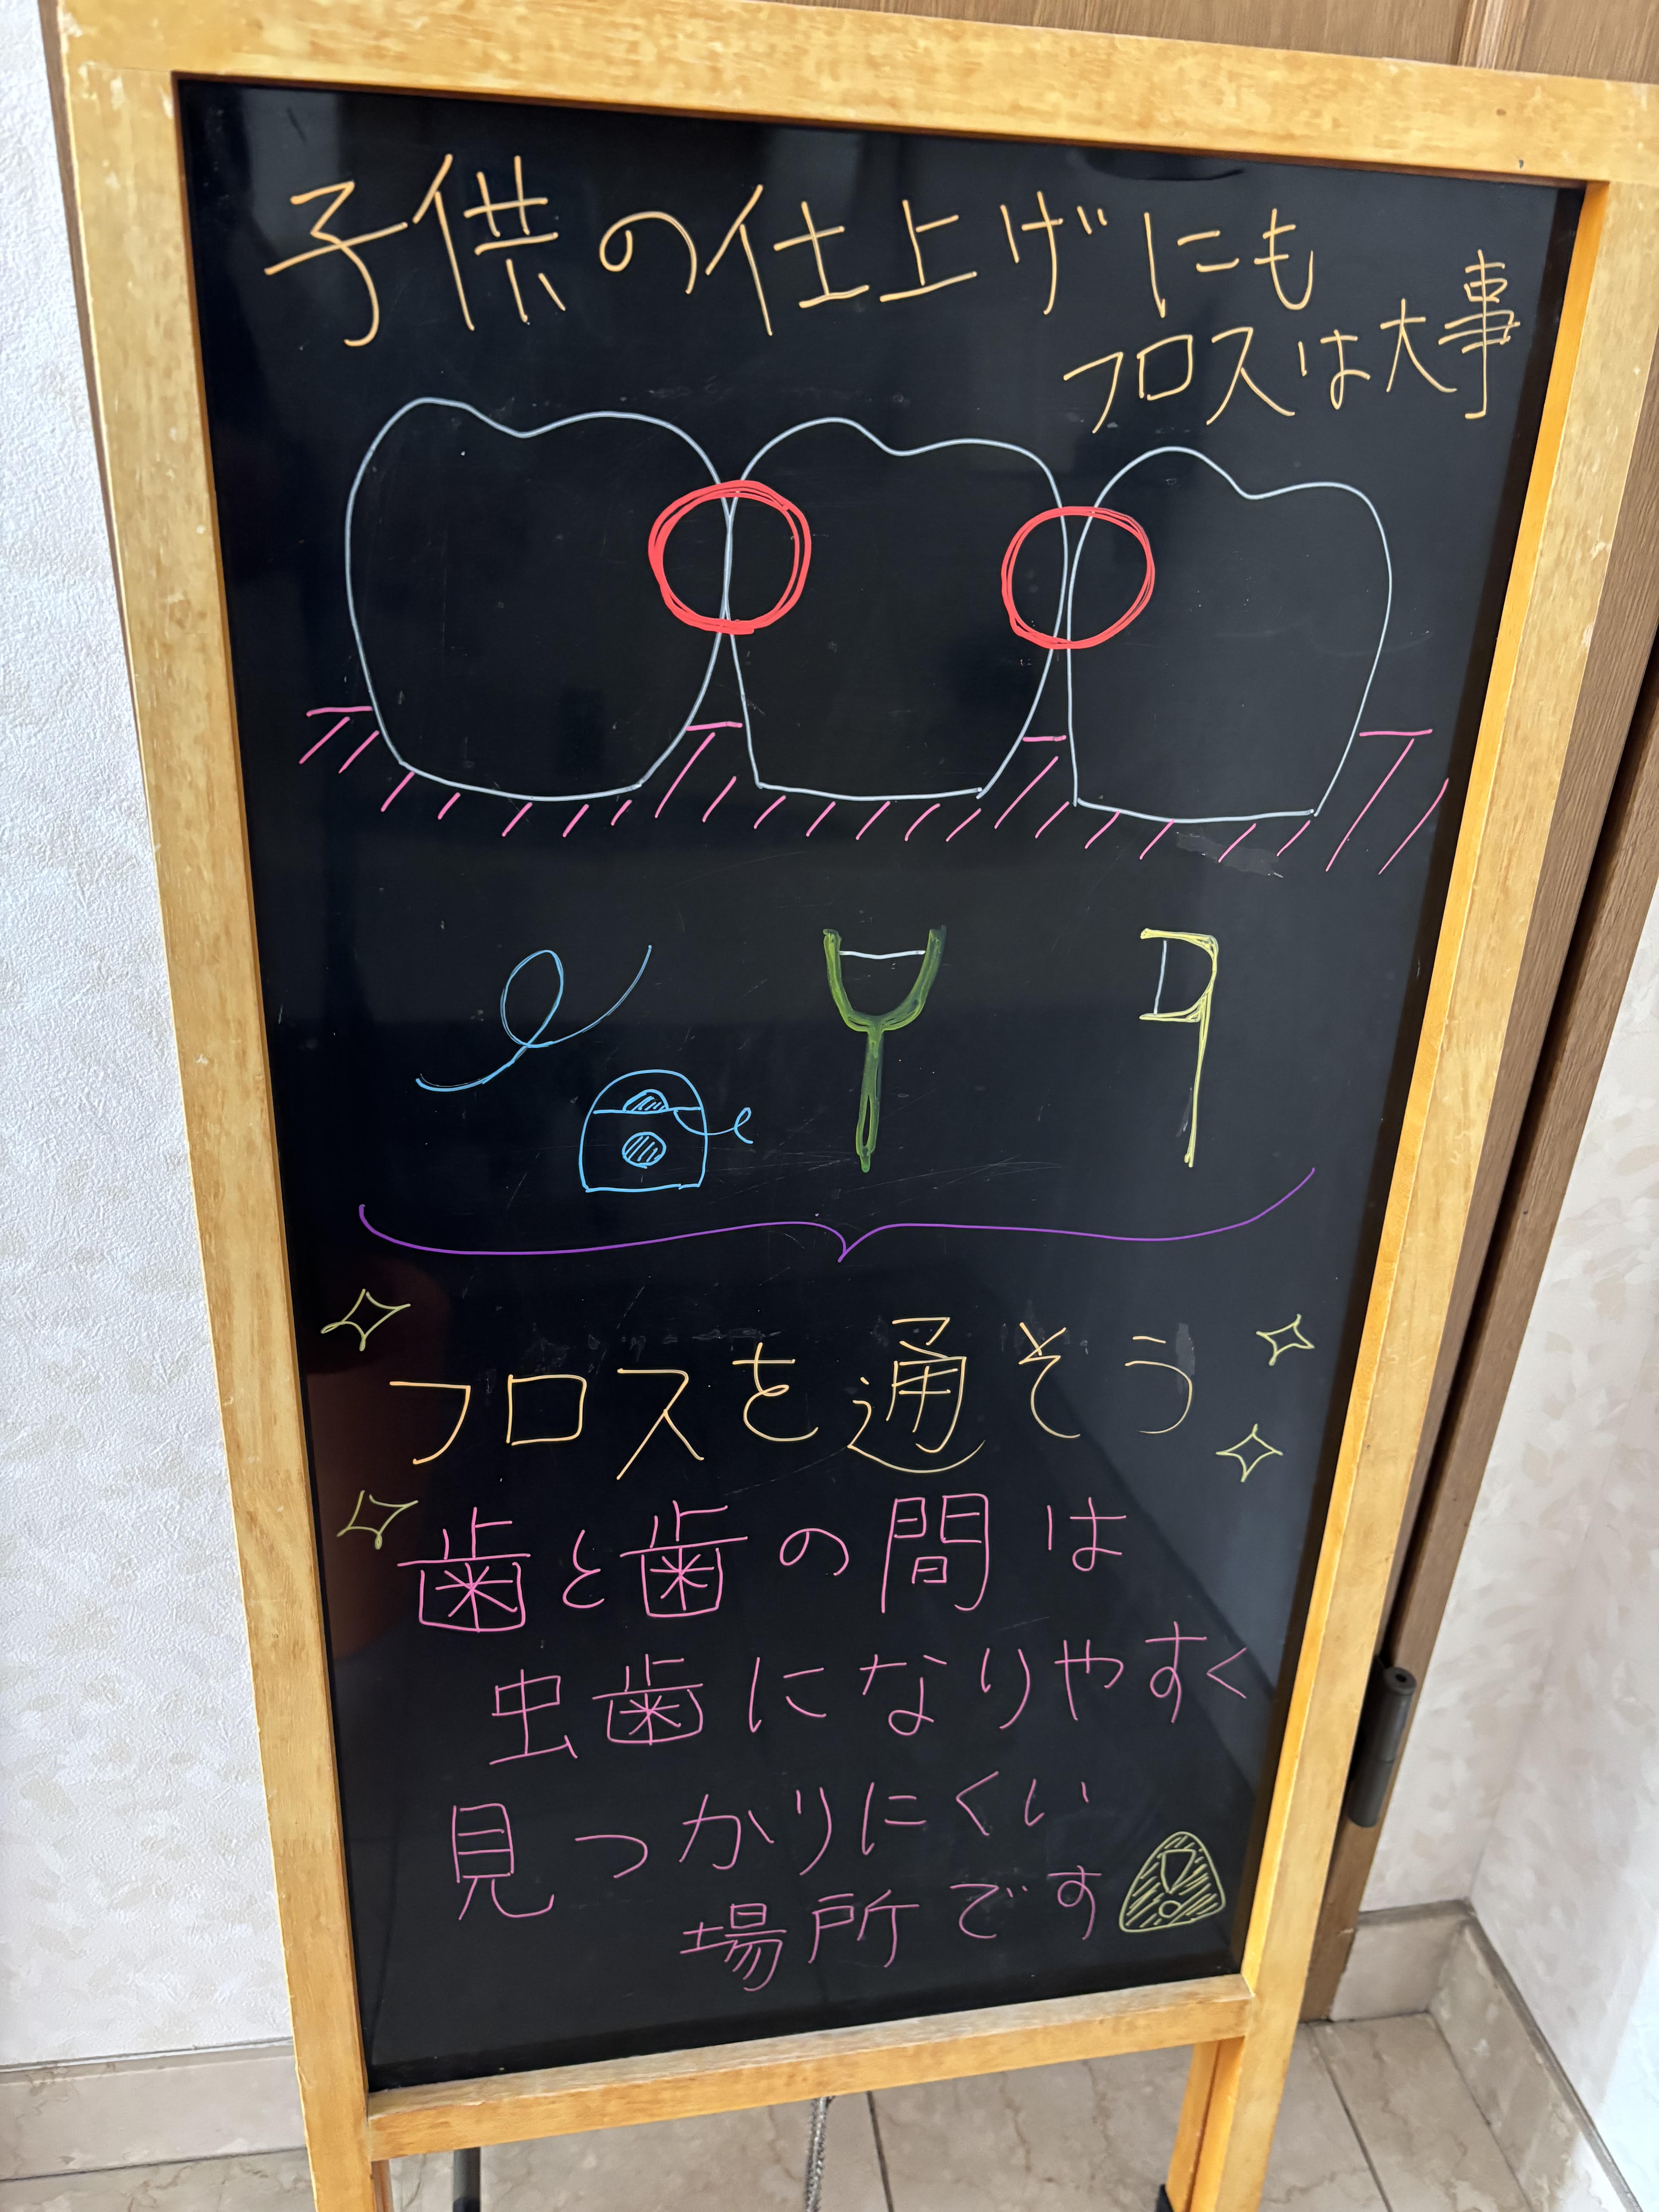 子供の仕上げにも
フロスは大事
フロスを通そう
歯と歯の間は
虫歯になりやすく
見つかりにくい
場所です